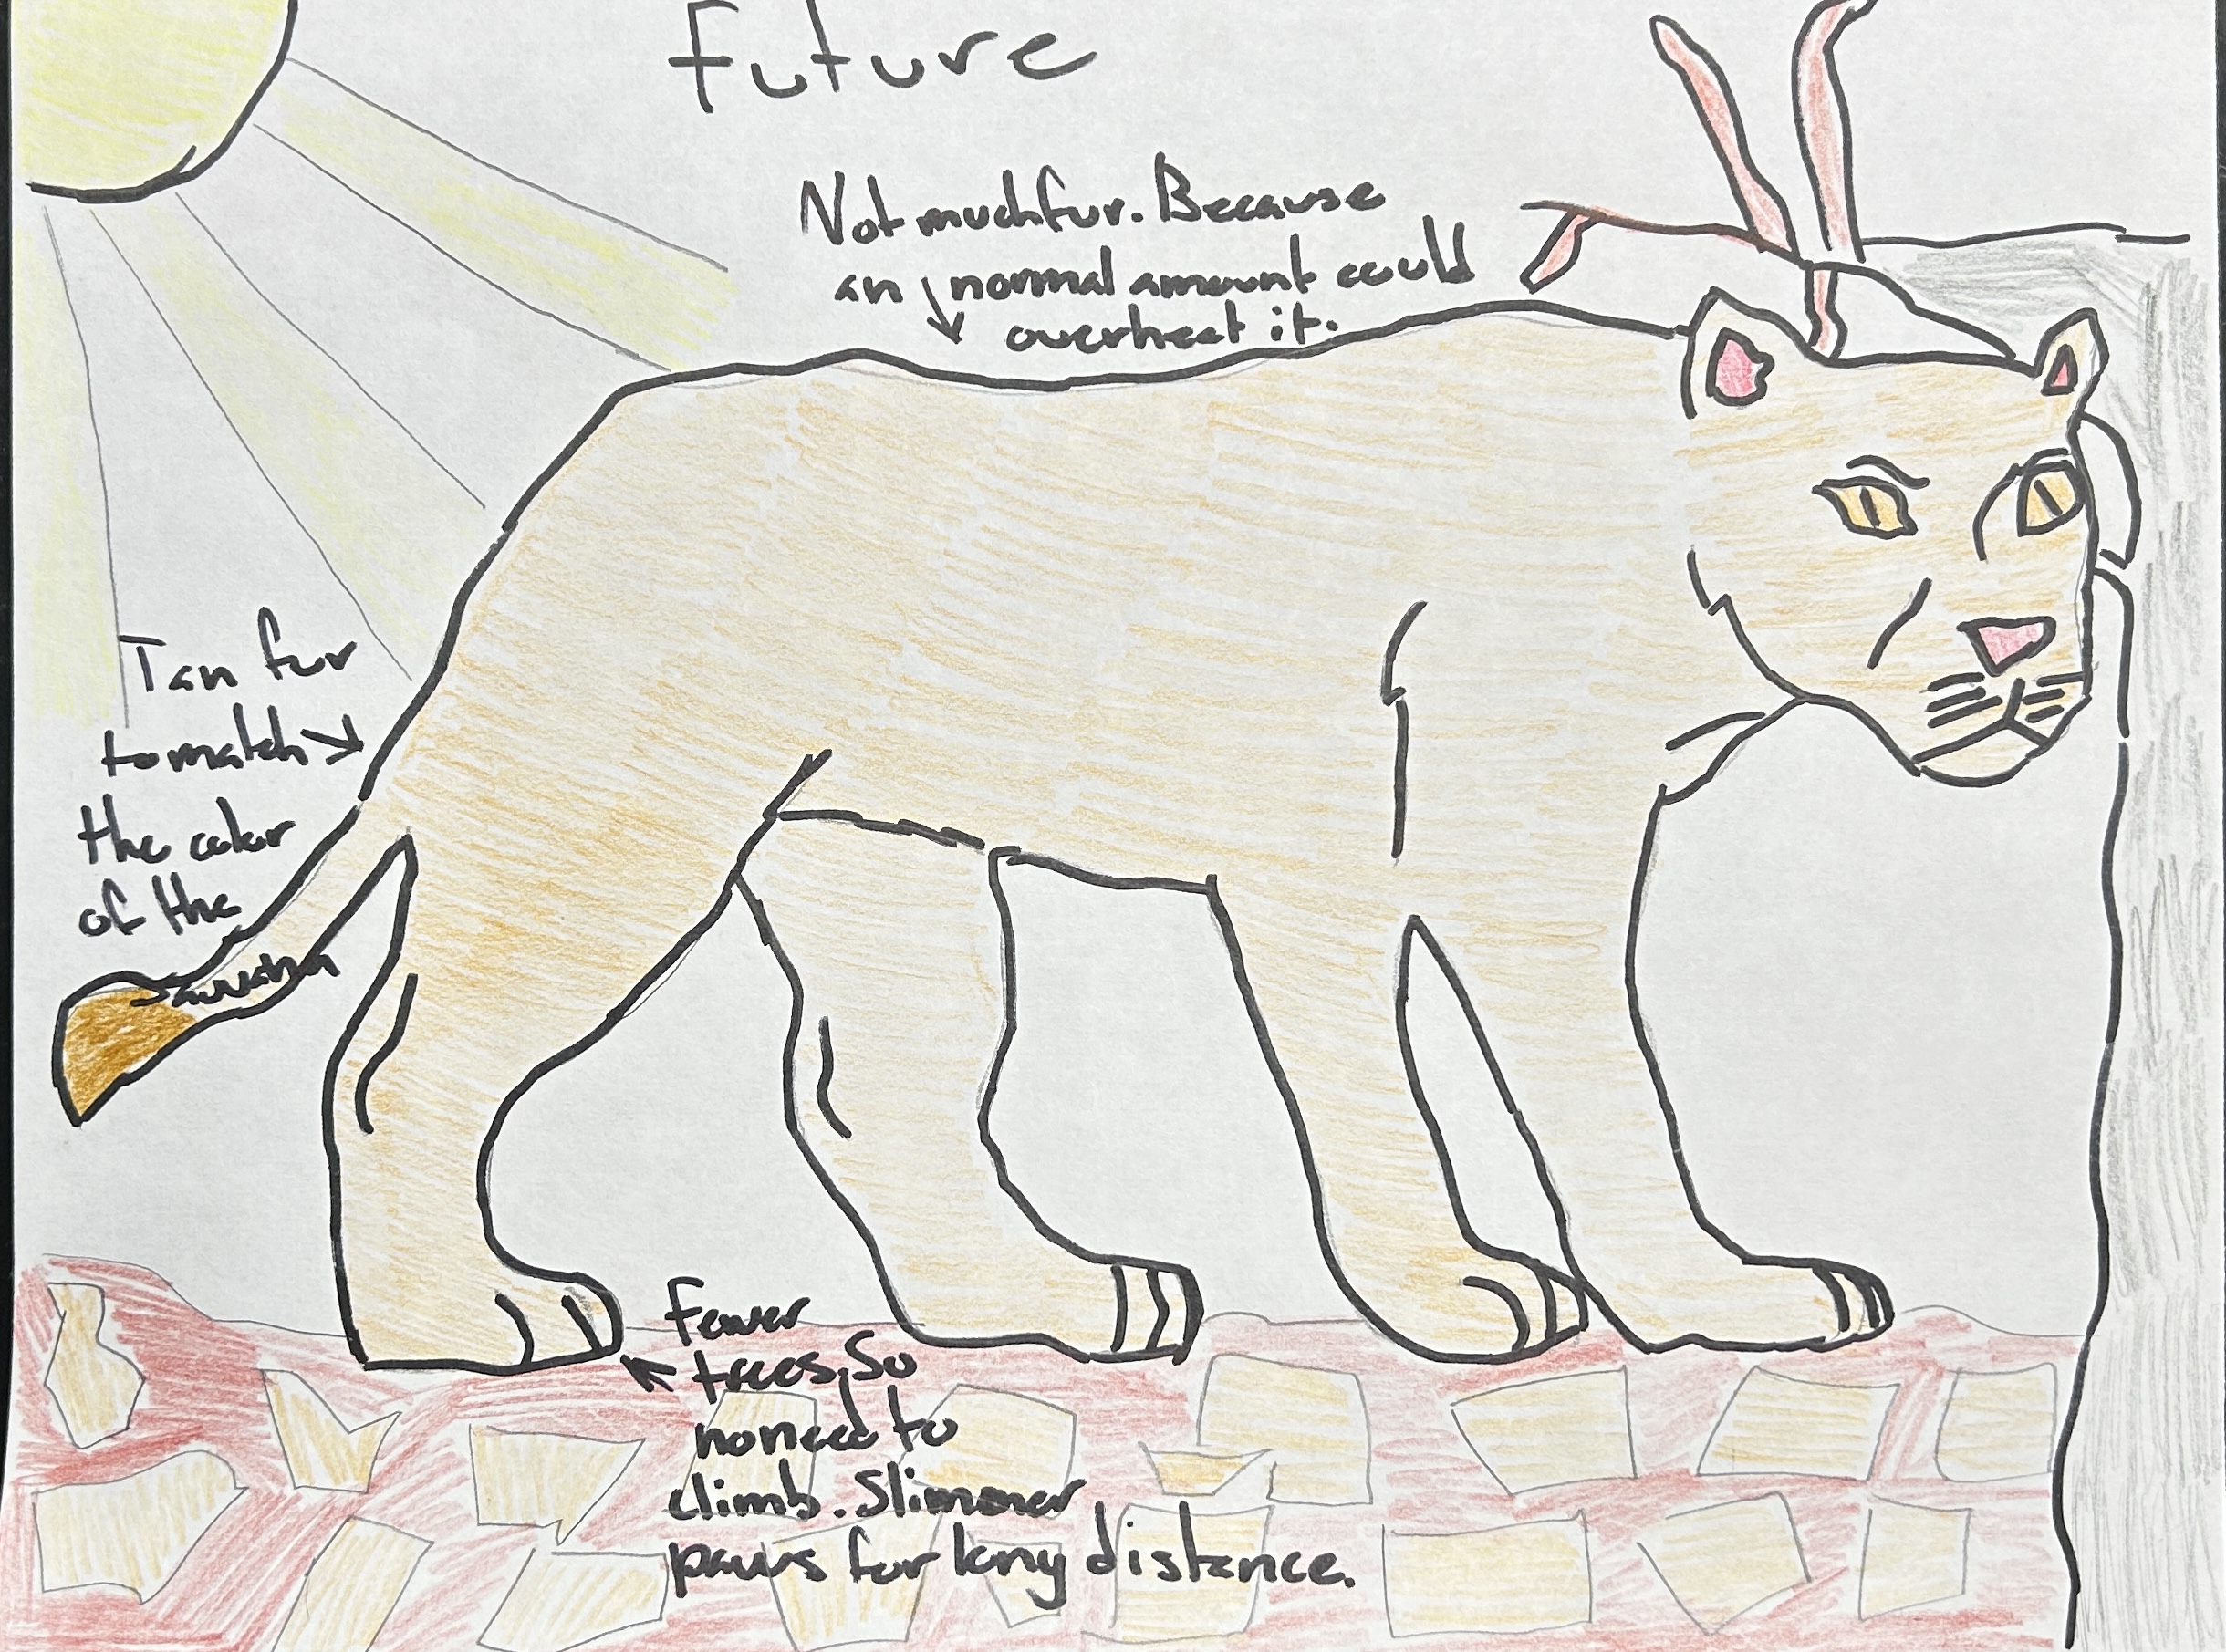 Future
Not much fur. Because
an normal amount could
overheat it.
Tan fur
to match
the color
of the
Savvahna
Fewer
trees. So
no need to
climb. Slimmer
paws for long distance.